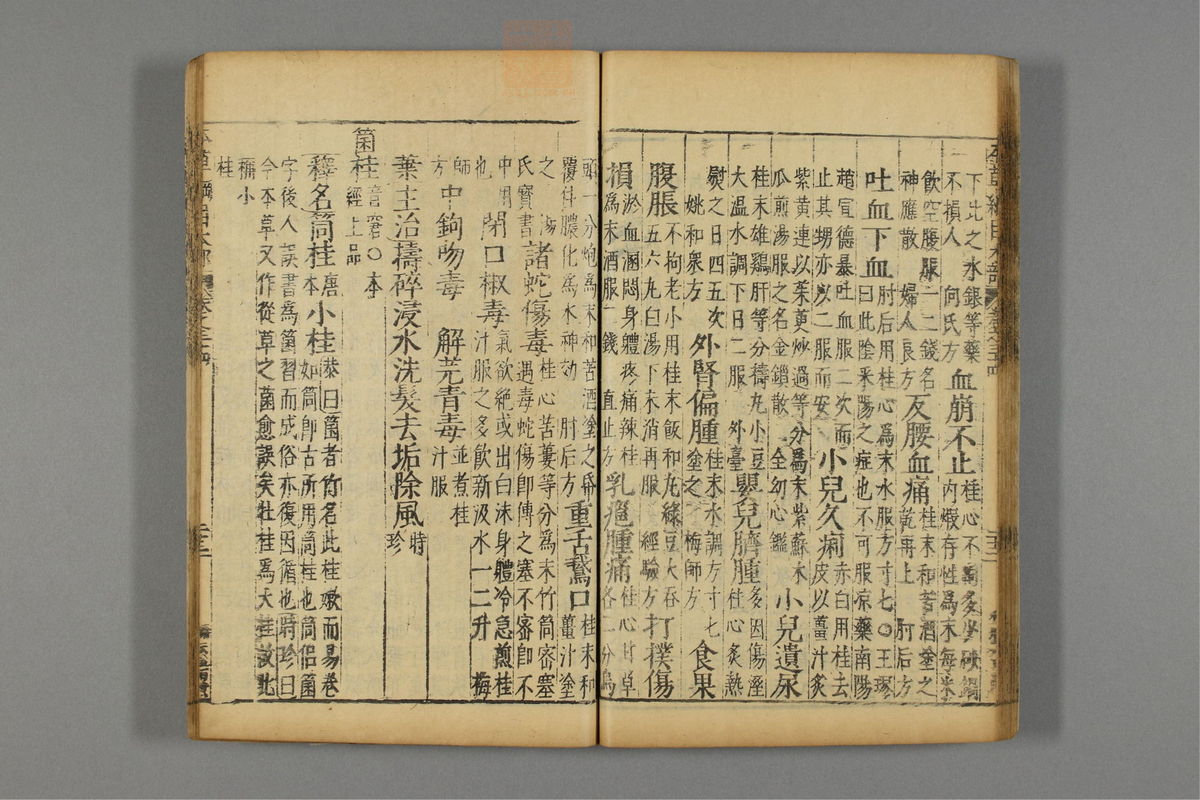 下此之水銀等藥
不損人 何氏方 血崩不止 桂心不拘多少砂鍋
內煅存性為末每米
飲空腹服一二錢名
神應散 婦人良方 反腰血痛 桂末和苦酒塗之
乾再上 肘后方
吐血下血 肘后用桂心為末水服方寸七〇王璆
曰此陰乘陽之症也不可服凉藥南陽
趙宣德暴吐血服二次而
止其甥亦以二服而安 小兒久痢 赤白用桂去
皮以薑汁炙
紫黃連以茱萸炒過等分為末紫蘇木
瓜煎湯服之名金鎖散 全幼心鑑 小兒遺尿
桂末雄雞肝等分擣丸小豆
大溫水調下日二服 外臺 嬰兒臍腫 多因傷溼
桂心炙熱
熨之日四五次
姚和衆方 外腎偏腫 桂末水調方寸七
塗之 梅師方 食果
腹脹 不拘老小用桂末飯和丸綠豆大吞
五六丸白湯下未消再服 經驗方 打撲傷
損 淤血溷悶身軆疼痛辣桂
為末酒服二錢 直止方 乳癰腫痛 桂心甘草
各二分烏
頭一分炮為末和苦酒塗之帋
覆住膿化為水神効 肘后方 重舌鵞口 桂末和
薑汁塗
之 湯
氏寶書 諸蛇傷毒 桂心苦蔞等分為末竹筒密塞
遇毒蛇傷即傅之塞不密即不
中用
也 閉口椒毒 氣欲絕或出白沫身軆冷急煎桂
汁服之多飲新汲水一二升 梅
師
方 中鉤吻毒 解芫青毒 並煮桂
汁服
葉主治擣碎浸水洗髮去垢除風 時
珍
箘桂 音窘〇本
經上品
釋名筒桂 唐
本 小桂 恭曰箘者竹名此桂嫩而易卷
如筒即古所用筒桂也筒侣箘
字後人誤書為箘習而成俗亦復因循也時珍曰
今本草又作從草之菌愈誤矣牡桂為大桂故此
稱小
桂